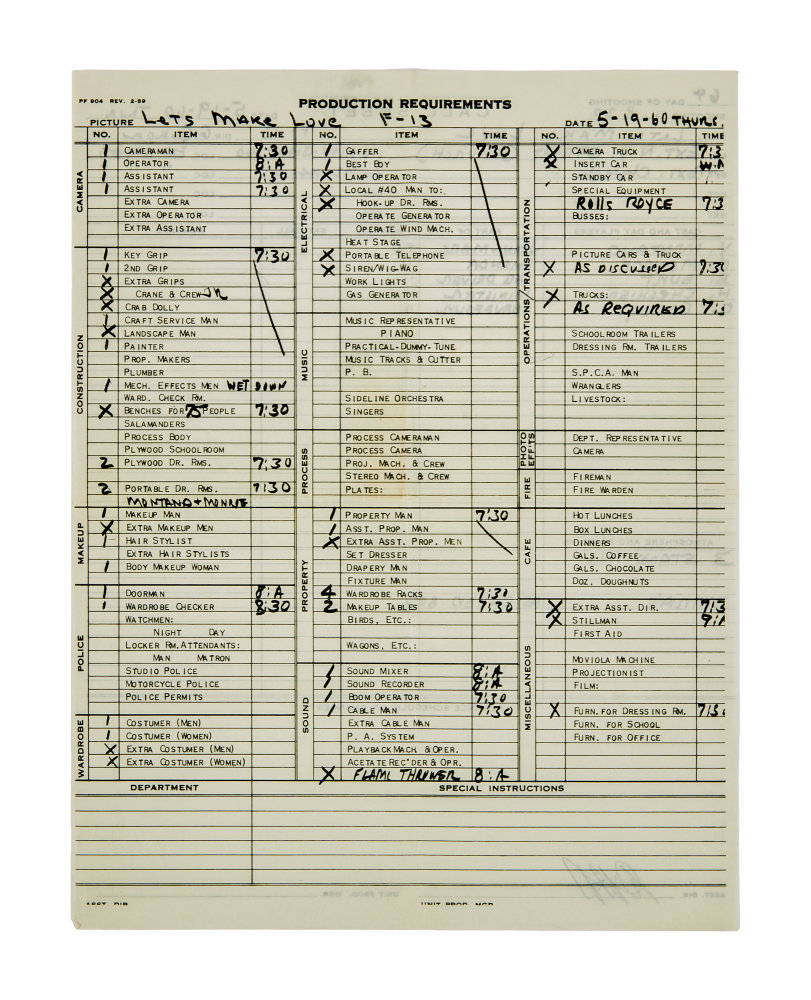 PF 904 REV. 2-59
PRODUCTION REQUIREMENTS
PICTURE LETS MAKE LOVE F-13 DATE 5-19-60 THURS.
NO. ITEM TIME
CAMERA
1 CAMERAMAN 7:30
1 OPERATOR 8:A
1 ASSISTANT 7:30
1 ASSISTANT 7:30
EXTRA CAMERA
EXTRA OPERATOR
EXTRA ASSISTANT
CONSTRUCTION
1 KEY GRIP 7:30
1 2ND GRIP
X EXTRA GRIPS
X CRANE & CREW
X CRAB DOLLY
1 CRAFT SERVICE MAN
X LANDSCAPE MAN
1 PAINTER
PROP. MAKERS
PLUMBER
1 MECH. EFFECTS MEN WET DOWN
WARD. CHECK RM.
X BENCHES FOR 75 PEOPLE 7:30
SALAMANDERS
PROCESS BODY
PLYWOOD SCHOOLROOM
2 PLYWOOD DR. RMS. 7:30
2 PORTABLE DR. RMS. 7:30
MONTAND + MONROE
MAKEUP
1 MAKEUP MAN
X EXTRA MAKEUP MEN
1 HAIR STYLIST
EXTRA HAIR STYLISTS
1 BODY MAKEUP WOMAN
POLICE
1 DOORMAN 8:A
1 WARDROBE CHECKER 8:30
WATCHMEN:
NIGHT DAY
LOCKER RM. ATTENDANTS:
MAN MATRON
STUDIO POLICE
MOTORCYCLE POLICE
POLICE PERMITS
WARDROBE
1 COSTUMER (MEN)
1 COSTUMER (WOMEN)
X EXTRA COSTUMER (MEN)
X EXTRA COSTUMER (WOMEN)
NO. ITEM TIME
ELECTRICAL
1 GAFFER 7:30
1 BEST BOY
X LAMP OPERATOR
X LOCAL #40 MAN TO:
X HOOK-UP DR. RMS.
OPERATE GENERATOR
OPERATE WIND MACH.
HEAT STAGE
X PORTABLE TELEPHONE
X SIREN/WIG-WAG
WORK LIGHTS
GAS GENERATOR
MUSIC
MUSIC REPRESENTATIVE
PIANO
PRACTICAL-DUMMY-TUNE
MUSIC TRACKS & CUTTER
P. B.
SIDELINE ORCHESTRA
SINGERS
PROCESS
PROCESS CAMERAMAN
PROCESS CAMERA
PROJ. MACH. & CREW
STEREO MACH. & CREW
PLATES:
PROPERTY
1 PROPERTY MAN 7:30
1 ASST. PROP. MAN
X EXTRA ASST. PROP. MEN
SET DRESSER
DRAPERY MAN
FIXTURE MAN
4 WARDROBE RACKS 7:30
2 MAKEUP TABLES 7:30
BIRDS, ETC.:
WAGONS, ETC.:
SOUND
1 SOUND MIXER 8:A
1 SOUND RECORDER 8:A
1 BOOM OPERATOR 7:30
1 CABLE MAN 7:30
EXTRA CABLE MAN
P. A. SYSTEM
PLAYBACK MACH & OPER.
ACETATE REC'DER & OPR.
X FLAME THROWER 8:A
NO. ITEM TIME
OPERATIONS/TRANSPORTATION
X CAMERA TRUCK 7:3
X INSERT CAR W.A
STANDBY CAR
SPECIAL EQUIPMENT
ROLLS ROYCE 7:3
BUSSES:
PICTURE CARS & TRUCK
X AS DISCUSSED 7:30
X TRUCKS:
AS REQUIRED 7:3
SCHOOLROOM TRAILERS
DRESSING RM. TRAILERS
S.P.C.A. MAN
WRANGLERS
LIVESTOCK:
PHOTO EFF'TS
DEPT. REPRESENTATIVE
CAMERA
FIRE
FIREMAN
FIRE WARDEN
CAFE
HOT LUNCHES
BOX LUNCHES
DINNERS
GALS. COFFEE
GALS. CHOCOLATE
DOZ. DOUGHNUTS
MISCELLANEOUS
X EXTRA ASST. DIR. 7:3
X STILLMAN 9:A
FIRST AID
MOVIOLA MACHINE
PROJECTIONIST
FILM:
X FURN. FOR DRESSING RM. 7:30
FURN. FOR SCHOOL
FURN. FOR OFFICE
DEPARTMENT SPECIAL INSTRUCTIONS
ASST. DIR. UNIT PROD. MGR.